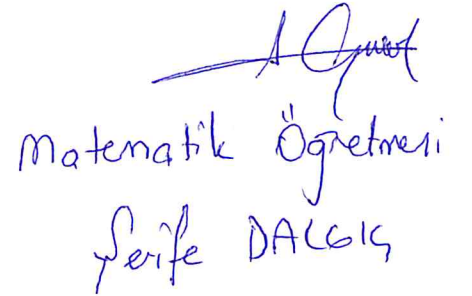 Matematik Öğretmeni
Şerife DALGIÇ